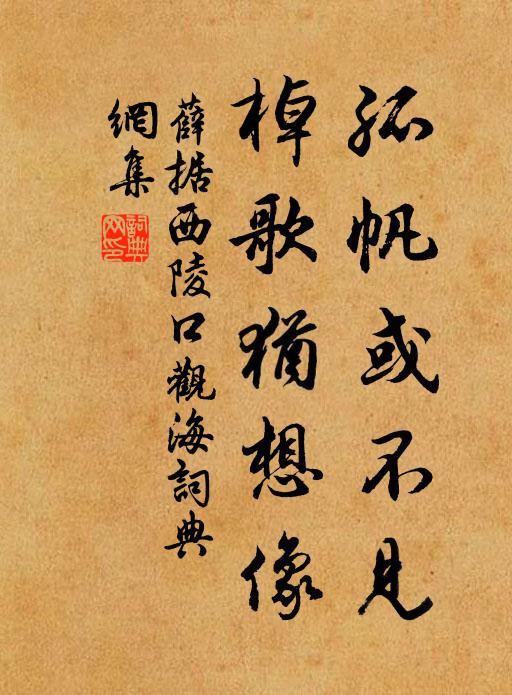 孤帆或不見
棹歌猶想像
薛据西陵口觀海詞典
網集
詞典
网印